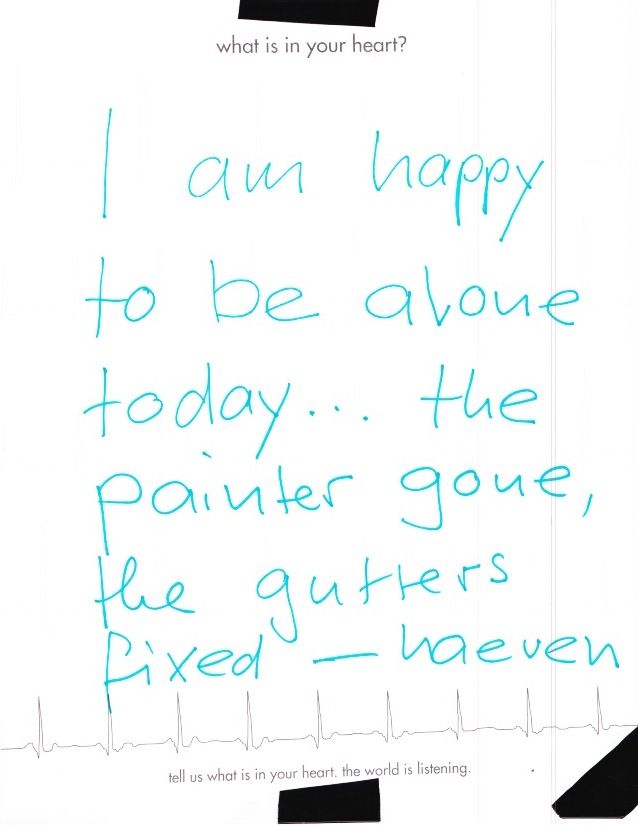 what is in your heart?
I am happy
to be alone
today... the
painter gone,
the gutters
fixed — haeven
tell us what is in your heart. the world is listening.